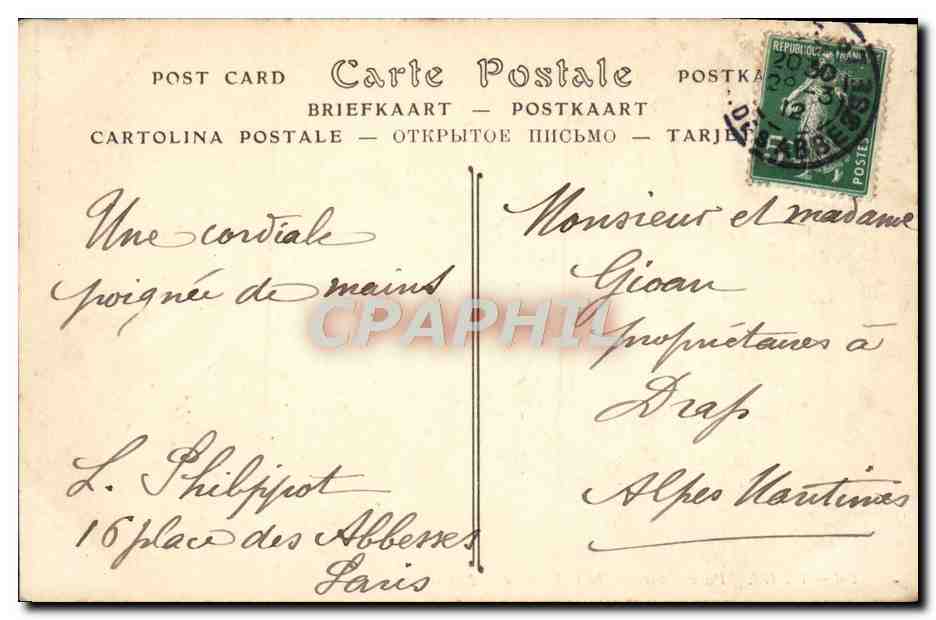 POST CARD Carte Postale POSTKA
BRIEFKAART — POSTKAART
CARTOLINA POSTALE — ОТКРЫТОЕ ПИСЬМО — TARJET
REPUBLIQUE FRANC
POSTES
20
30
28 -3
12
ABBESSES
Une cordiale
poignée de mains
L. Philippot
16 place des Abbesses
Paris
Monsieur et madame
Gioan
propriétaires à
Drap
Alpes Maritimes
CPAPHIL